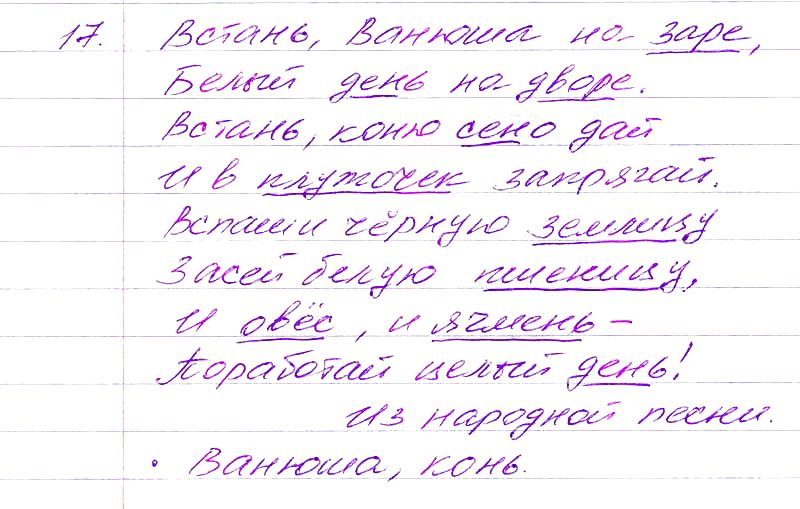 17. Встань, Ванюша на заре,
Белый день на дворе.
Встань, коню сено дай
И в плужочек запрягай.
Вспаши чёрную землицу
Засей белую пшеницу,
И овёс, и ячмень –
Поработай целый день!
Из народной песни.
• Ванюша, конь.